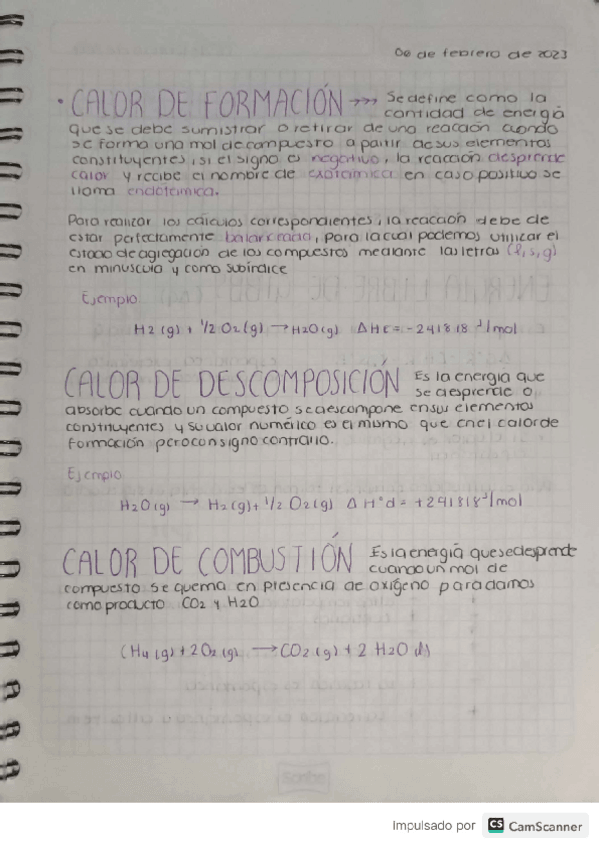 06 de febrero de 2023
• CALOR DE FORMACIÓN →→→ Se define como la
cantidad de energía
que se debe sumistrar o retirar de una reacción cuando
se forma una mol de compuesto a partir de sus elementos
constituyentes, si el signo es negativo, la reacción desprende
calor y recibe el nombre de exotérmica en caso positivo se
llama endotérmica.
Para realizar los cálculos correspondientes, la reacción debe de
estar perfectamente balanceada, para la cual podemos utilizar el
estado de agregación de los compuestos mediante las letras (l,s,g)
en minúscula y como subíndice
Ejemplo
H2 (g) + 1/2 O2 (g) → H2O (g) ΔHf = -241818 J/mol
CALOR DE DESCOMPOSICIÓN Es la energía que
se desprende o
absorbe cuando un compuesto se descompone en sus elementos
constituyentes y su valor numérico es el mismo que en el calor de
formación pero con signo contrario.
Ejemplo
H2O (g) → H2 (g) + 1/2 O2 (g) ΔH°d = +241818 J/mol
CALOR DE COMBUSTIÓN Es la energía que se desprende
cuando un mol de
compuesto se quema en presencia de oxígeno para darnos
como producto CO2 y H2O
CH4 (g) + 2O2 (g) → CO2 (g) + 2 H2O (l)
Impulsado por CS CamScanner